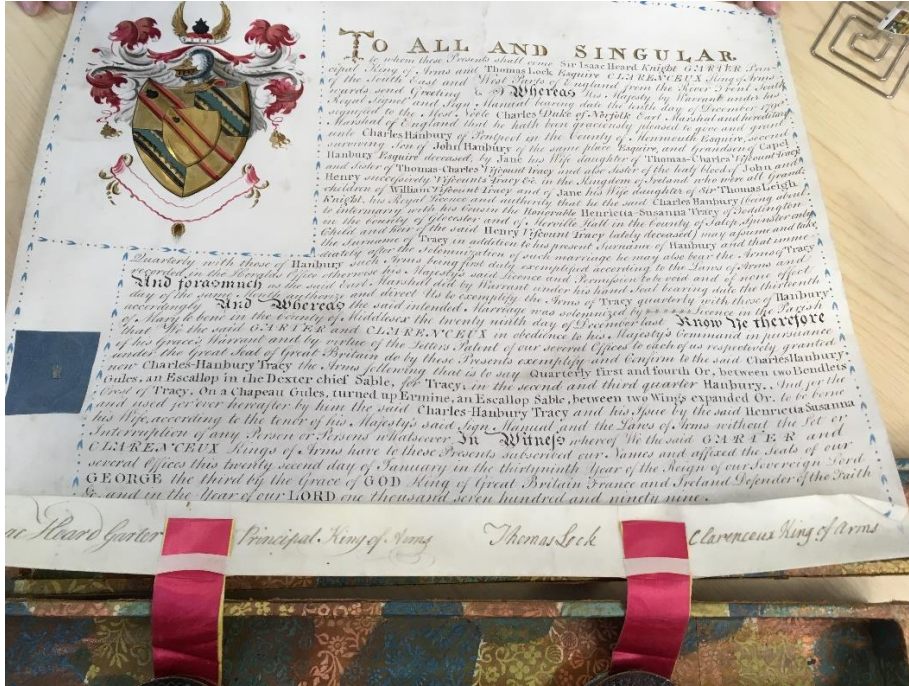 TO ALL AND SINGULAR
to whom these Presents shall come Sir Isaac Heard Knight GARTER Prin-
cipal King of Arms and Thomas Lock Esquire CLARENCEUX King of Arms
of the South East and West Parts of England from the River Trent South-
wards send Greeting Whereas His Majesty by Warrant under his
Royal Signet and Sign Manual bearing date the tenth day of December 1798
signified to the Most Noble Charles Duke of Norfolk Earl Marshal and hereditary
Marshal of England that he hath been graciously pleased to give and grant
unto Charles Hanbury of Pontpool in the County of Monmouth Esquire, second
surviving Son of John Hanbury of the same place Esquire, and Grandson of Capel
Hanbury Esquire deceased, by Jane his Wife daughter of Thomas-Charles Viscount Tracy
and Sister of Thomas-Charles Viscount Tracy and also Sister of the half blood of John and
Henry successively Viscounts Tracy &c. in the Kingdom of Ireland who were all Grand
children of William Viscount Tracy and of Jane his Wife daughter of Sir Thomas Leigh
Knight, his Royal Licence and authority that he the said Charles Hanbury (being about
to intermarry with his Cousin the Honorable Henrietta-Susanna Tracy of Toddington
in the County of Glocester and of Merville Hall in the County of Salop, Spinster only
Child and heir of the said Henry Viscount Tracy lately deceased) may assume and take
the Surname of Tracy in addition to his present Surname of Hanbury and that imme
diately after the Solemnization of such marriage he may also bear the Arms of Tracy
Quarterly with those of Hanbury such Arms being first duly exemplified according to the Laws of Arms and
recorded in the Heralds Office otherwise his Majesty's said licence and Permission to be void and of none effect
And forasmuch as the said Earl Marshal did by Warrant under his hand and Seal bearing date the thirteenth
day of the same Month authorize and direct Us to exemplify the Arms of Tracy quarterly with those of Hanbury
accordingly And Whereas the said intended Marriage was solemnized by licence in the Parish
of Mary le bone in the County of Middlesex the twenty ninth day of December last Know Ye therefore
that We the said GARTER and CLARENCEUX in obedience to his Majesty's Command in pursuance
of his Grace's Warrant and by virtue of the Letters Patent of our several Offices to each of us respectively granted
under the Great Seal of Great Britain do by these Presents exemplify and Confirm to the said Charles Hanbury,
now Charles-Hanbury Tracy the Arms following that is to say Quarterly first and fourth Or, between two Bendlets
Gules, an Escallop in the Dexter chief Sable, for Tracy, in the second and third quarter Hanbury.. And for the
Crest of Tracy, On a Chapeau Gules, turned up Ermine, an Escallop Sable, between two Wings expanded Or. to be borne
and used for ever hereafter by him the said Charles-Hanbury Tracy and his Issue by the said Henrietta Susanna
his Wife, according to the tenor of his Majesty's said Sign Manual and the Laws of Arms without the Let or
Interruption of any Person or Persons whatsoever In Witness whereof We the said GARTER and
CLARENCEUX Kings of Arms have to these Presents subscribed our Names and affixed the Seals of our
several Offices this twenty second day of January in the thirtyninth Year of the Reign of our Sovereign Lord
GEORGE the third by the Grace of GOD King of Great Britain France and Ireland Defender of the Faith
&c and in the Year of our LORD one thousand seven hundred and ninety nine.
Heard Garter Principal King of Arms Thomas Lock Clarenceux King of Arms